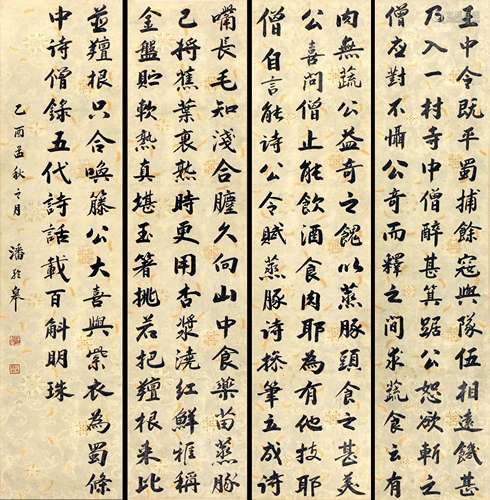 王中令既平蜀捕餘寇與隊伍相遠餓甚
乃入一村寺中僧醉甚箕踞公恕欲斬之
僧應對不懾公奇而釋之問求蔬食云有
肉無蔬公益奇之餽以蒸豚頭食之甚美
公喜問僧止能飲酒食肉耶為有他技耶
僧自言能詩公令賦蒸豚詩操筆立成詩
嘴長毛短淺含膻久向山中食藥苗蒸豚
已將蕉葉裹熟時更用杏漿澆紅鮮雅稱
金盤貯軟熟真堪玉箸挑若把羶根來比
並羶根只合喚籐公大喜與紫衣為蜀條
中詩僧錄五代詩話載百斛明珠
乙酉孟秋之月 潘齡皋